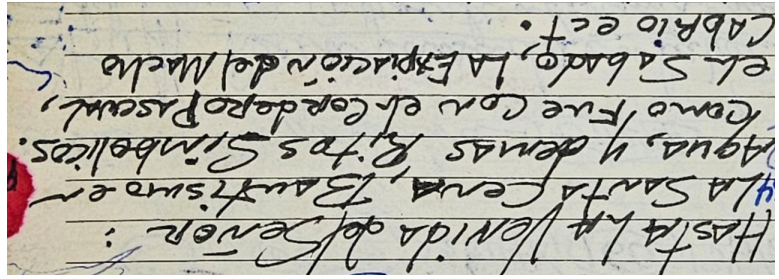 HASTA LA VENIDA del SEÑOR:
LA SANTA CENA, BAUTISMO en
AGUA, y demas Ritos Simbolicos.
Como Fue Con el Cordero Pascual,
el Sabado, LA Expiación del Macho
CABRIO ect.